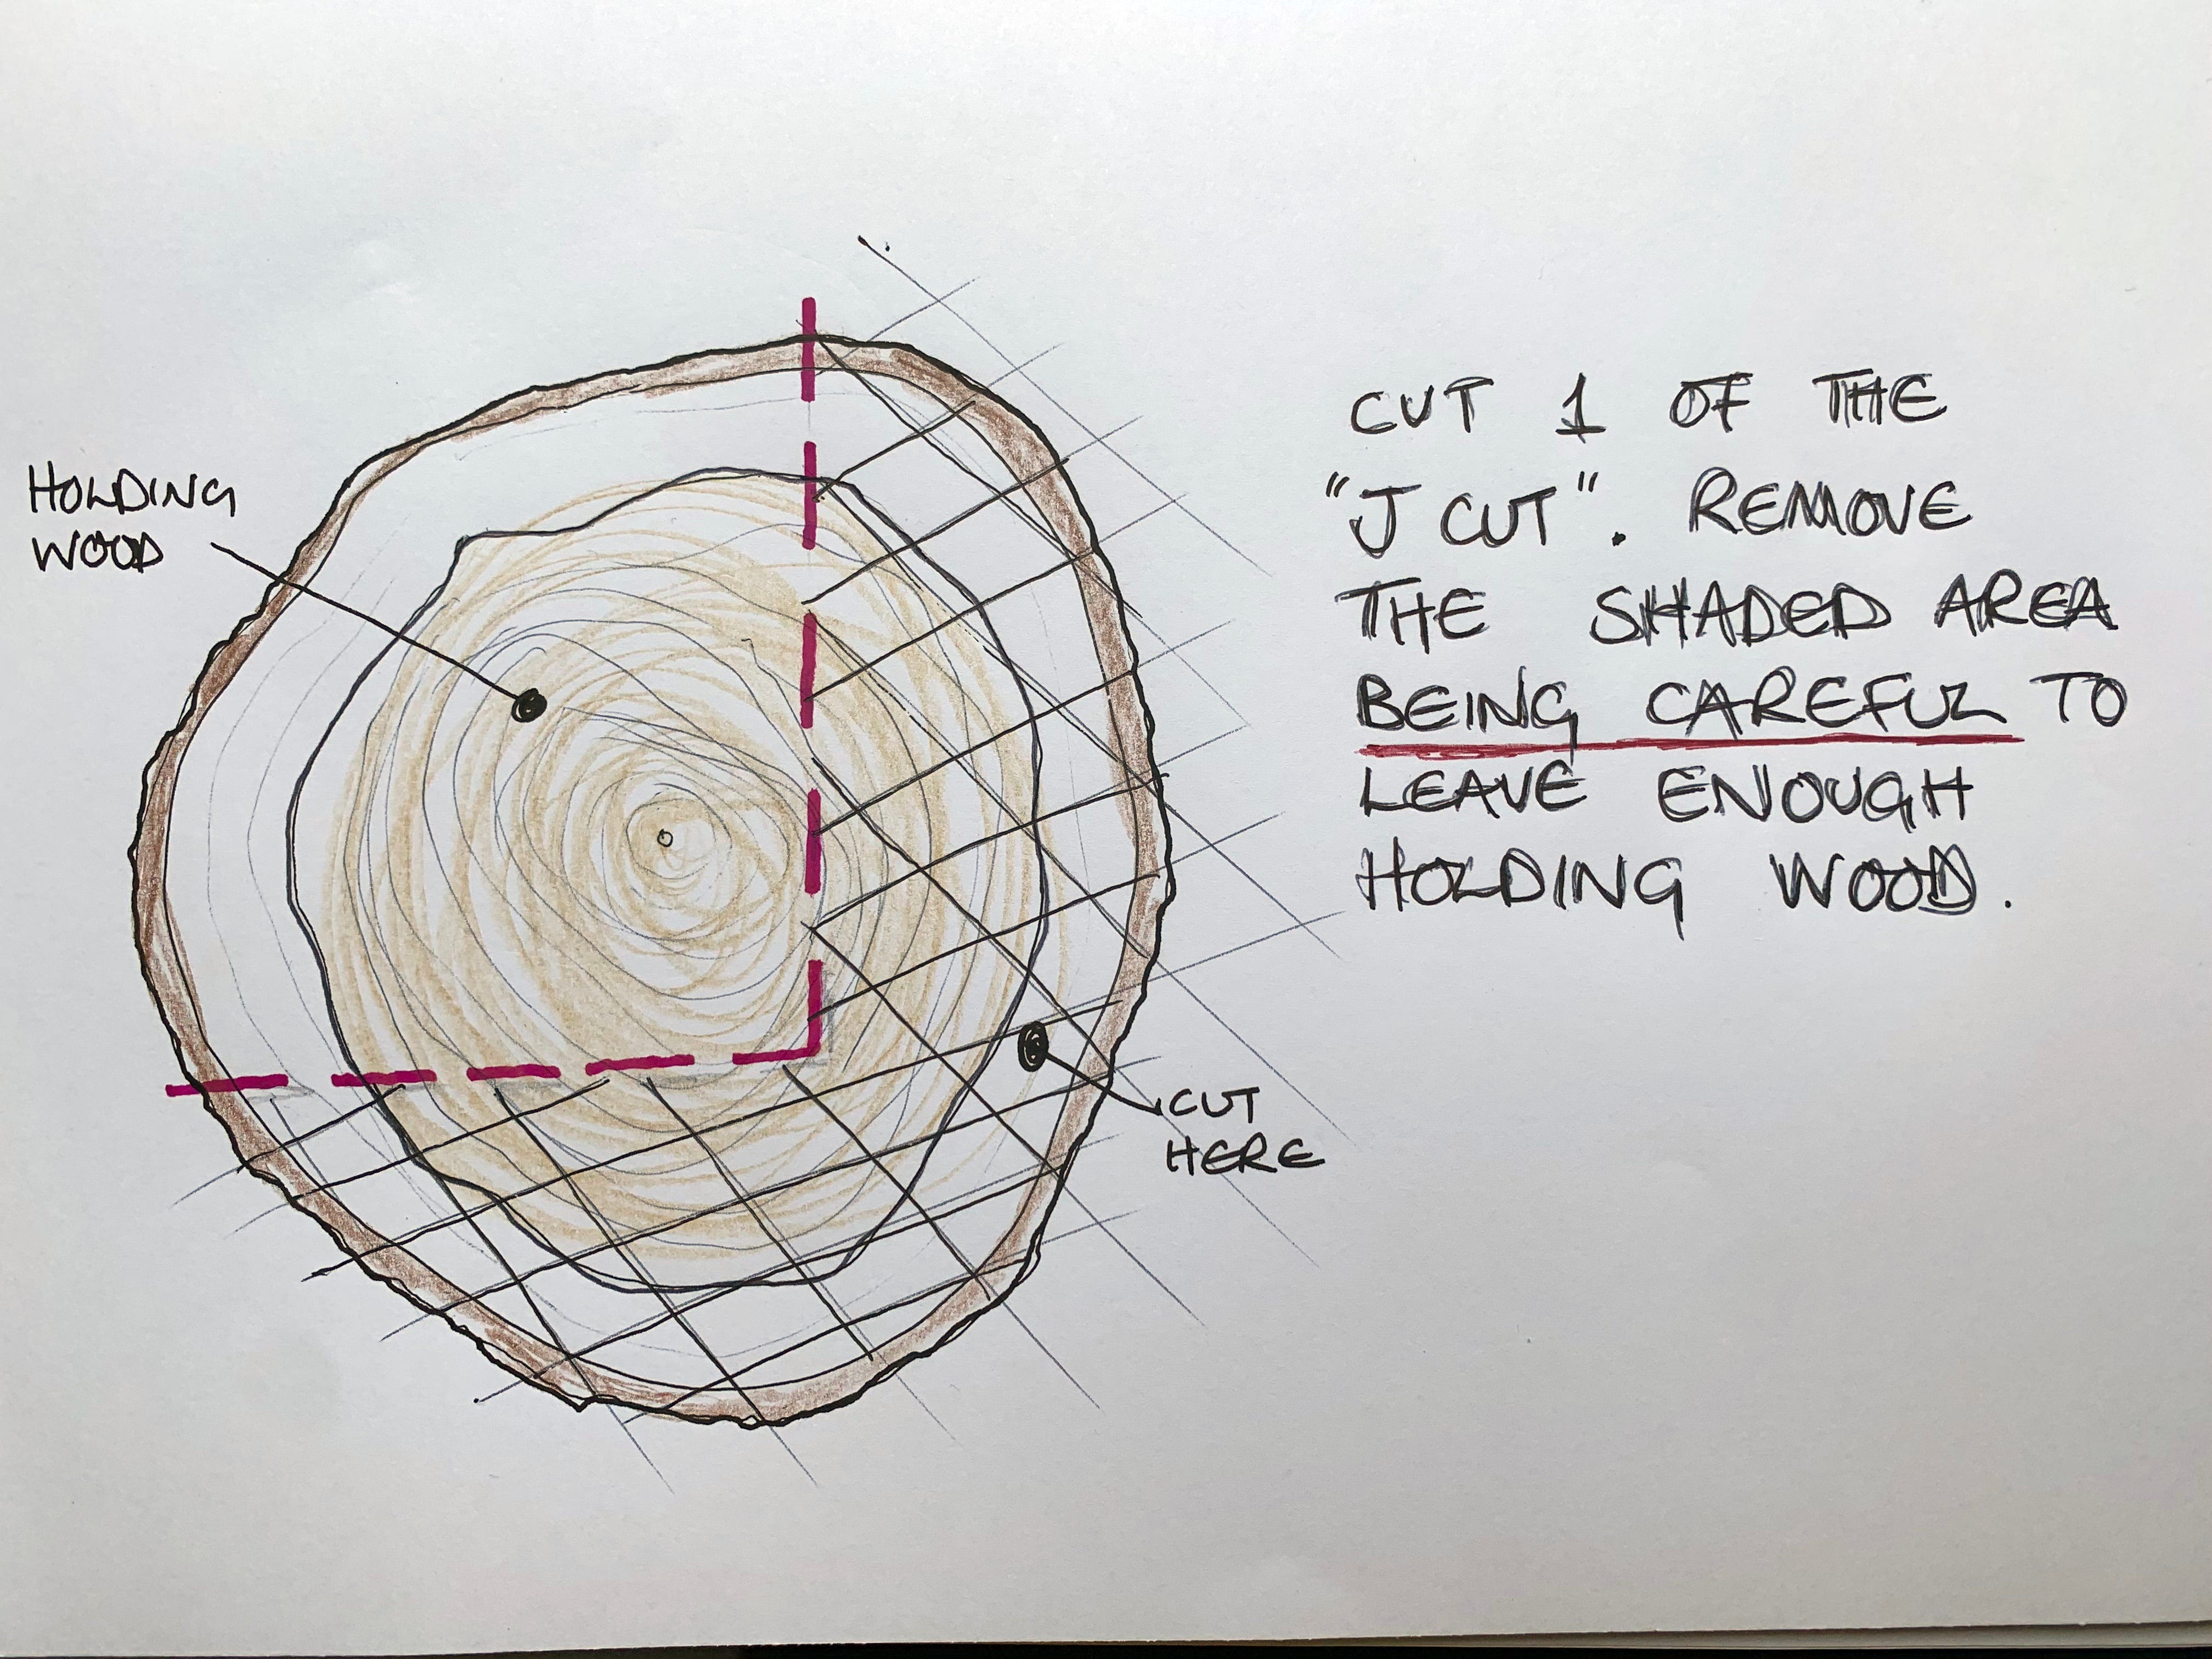 HOLDING
WOOD
CUT 1 OF THE
"J CUT". REMOVE
THE SHADED AREA
BEING CAREFUL TO
LEAVE ENOUGH
HOLDING WOOD.
CUT
HERE